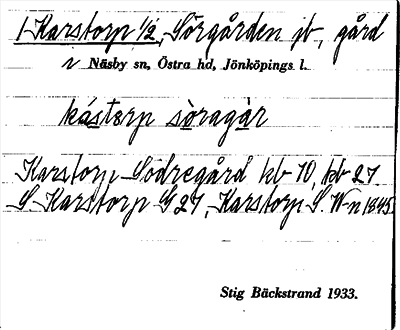 1 Karstorp 1/2, Sörgården jb, gård
i Näsby sn, Östra hd, Jönköpings l.
kástərp sòragàr
Karstorp Södregård kb 10, kb 27
S Karstorp G 27, Karstorp S. W-n 1845
Stig Bäckstrand 1933.